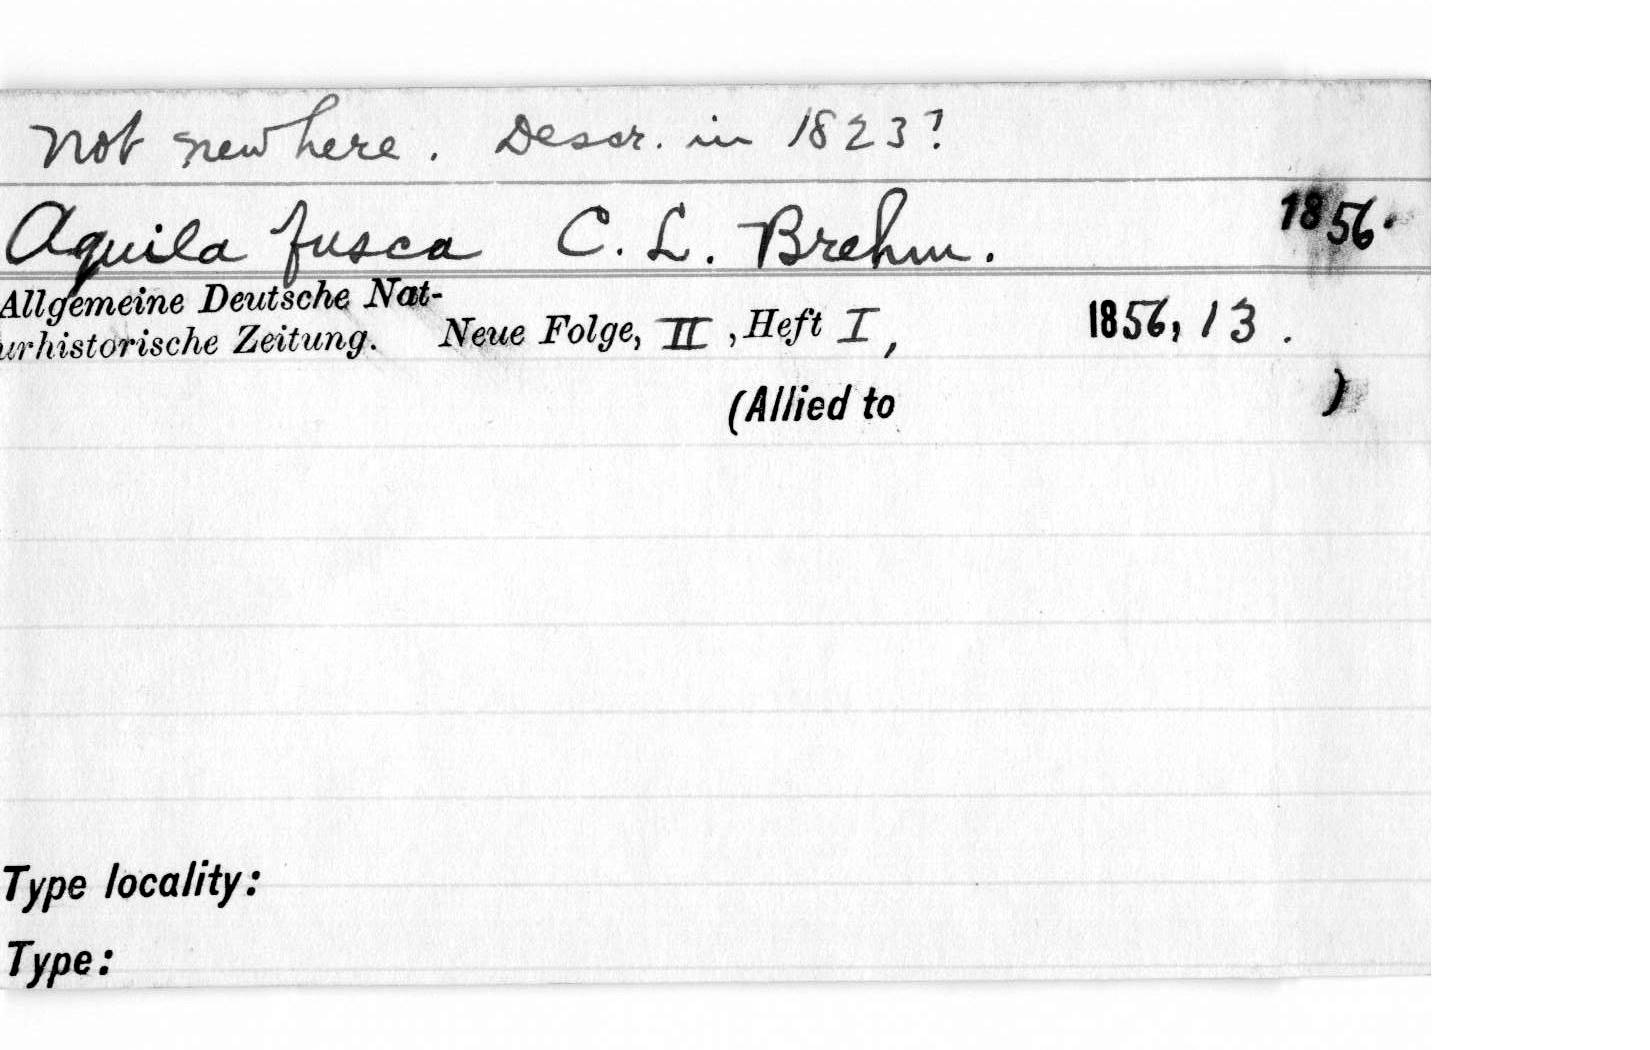 Not new here. Descr. in 1823?
Aquila fusca C. L. Brehm. 1856.
Allgemeine Deutsche Nat-
urhistorische Zeitung. Neue Folge, II, Heft I, 1856, 13.
(Allied to )
Type locality:
Type: